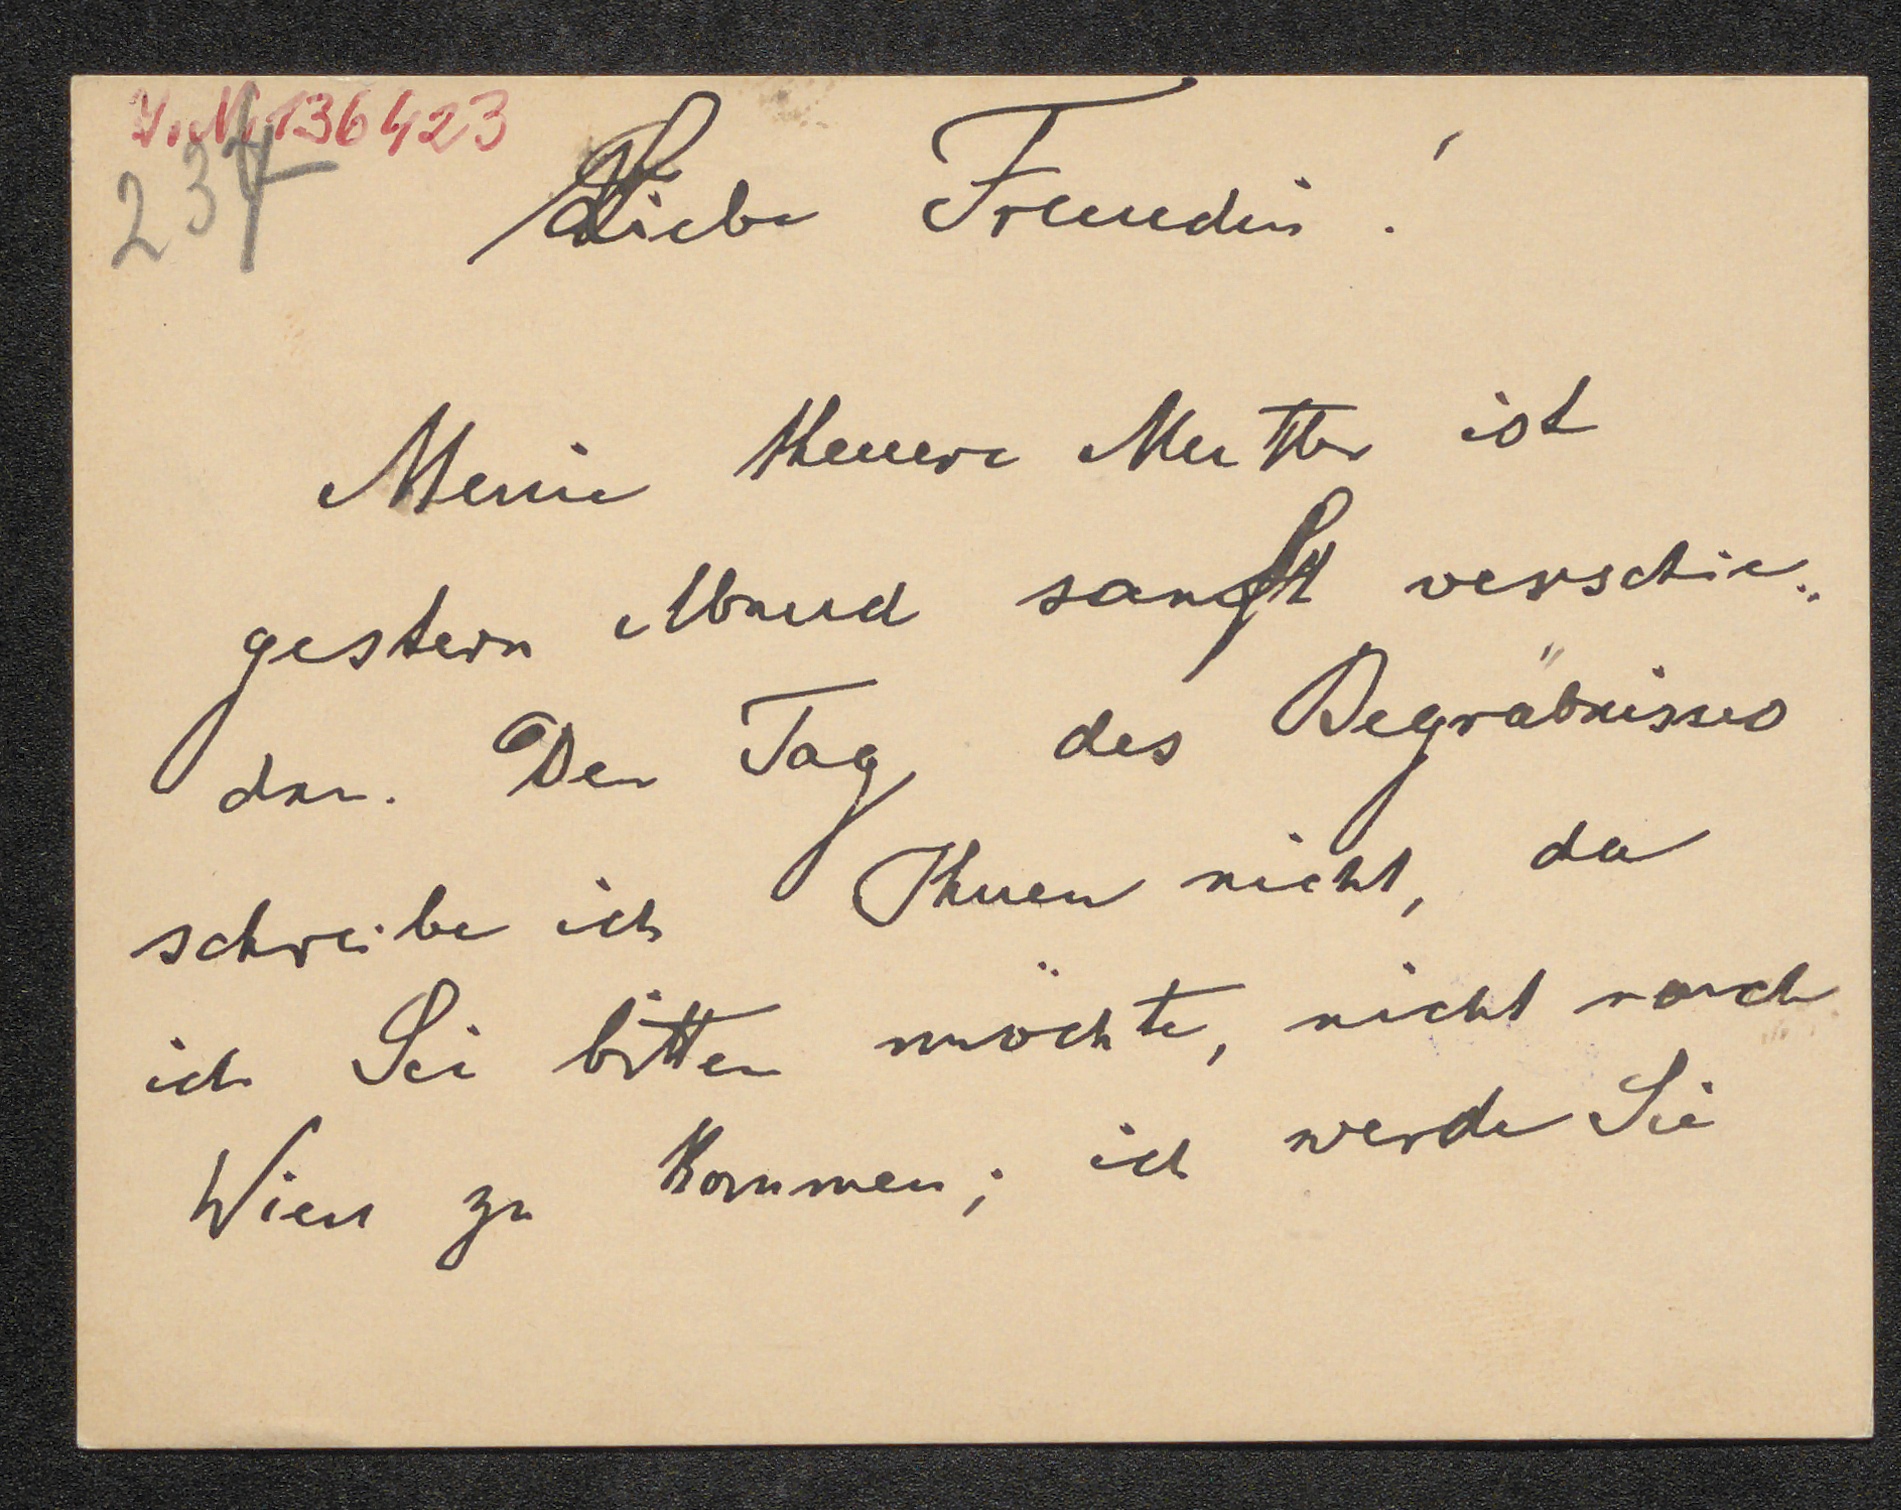 I.N. 136423
237
Liebe Freundin!
Meine theuere Mutter ist
gestern Abend sanft verschie-
den. Den Tag des Begräbnisses
schreibe ich Ihnen nicht, da
ich Sie bitten möchte, nicht nach
Wien zu kommen; ich werde Sie